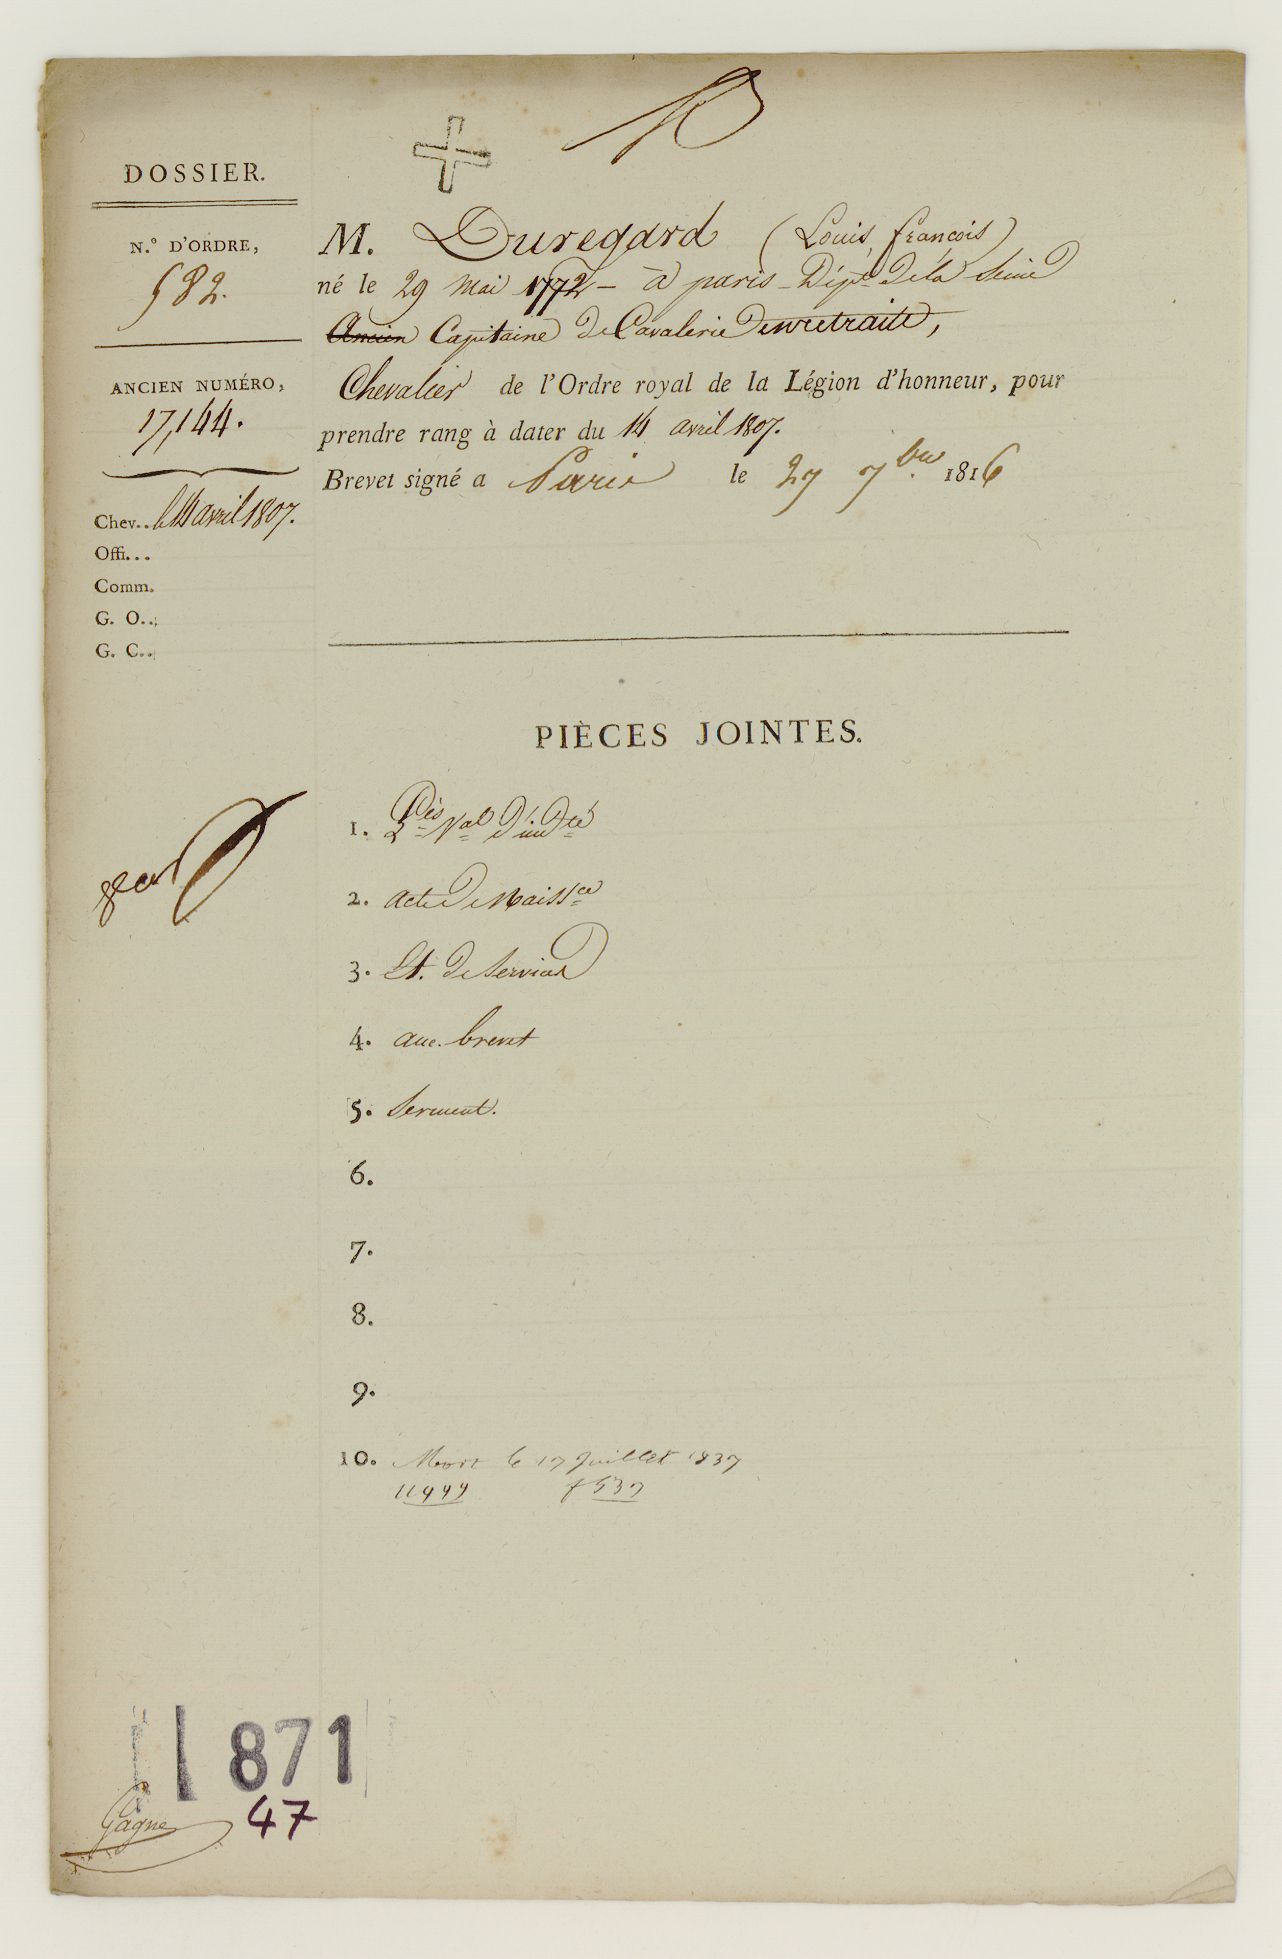 DOSSIER.
N.° D'ORDRE,
582.
ANCIEN NUMÉRO,
17,144.
Chev.. le 14 avril 1807.
Offi...
Comm.
G. O...
G. C...
M. Duregard (Louis, françois)
né le 29 Mai 1772 - à paris - Dépt. De la Seine
Ancien Capitaine de Cavalerie en retraite,
Chevalier de l'Ordre royal de la Légion d'honneur, pour
prendre rang à dater du 14 avril 1807.
Brevet signé a Paris le 27 7bre. 1816
PIÈCES JOINTES.
1. Pès Val d'indté
2. acte de Naissce
3. Et. de Services
4. anc. brevet
5. Serment.
6.
7.
8.
9.
10. Mort le 17 Juillet 1837
871
47
Gagne